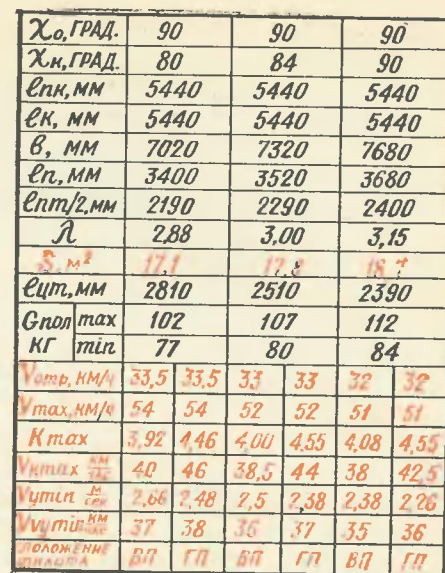 χо, ГРАД. 90 90 90
χк, ГРАД. 80 84 90
ℓпк, мм 5440 5440 5440
ℓк, мм 5440 5440 5440
в, мм 7020 7320 7680
ℓп, мм 3400 3520 3680
ℓпт/2, мм 2190 2290 2400
λ 2,88 3,00 3,15
S, м² 17,1 17,8 18,4
ℓцт, мм 2810 2510 2390
Gпол max 102 107 112
КГ min 77 80 84
Vотр, КМ/Ч 33,5 33,5 33 33 32 32
Vmax, КМ/Ч 54 54 52 52 51 51
К max 3,92 4,46 4,00 4,55 4,08 4,55
Vкmax км/час 40 46 38,5 44 38 42,5
Vymin м/сек 2,66 2,48 2,5 2,38 2,38 2,26
Vvymin км/час 37 38 36 37 35 36
ПОЛОЖЕНИЕ ПИЛОТА ВП ГП ВП ГП ВП ГП